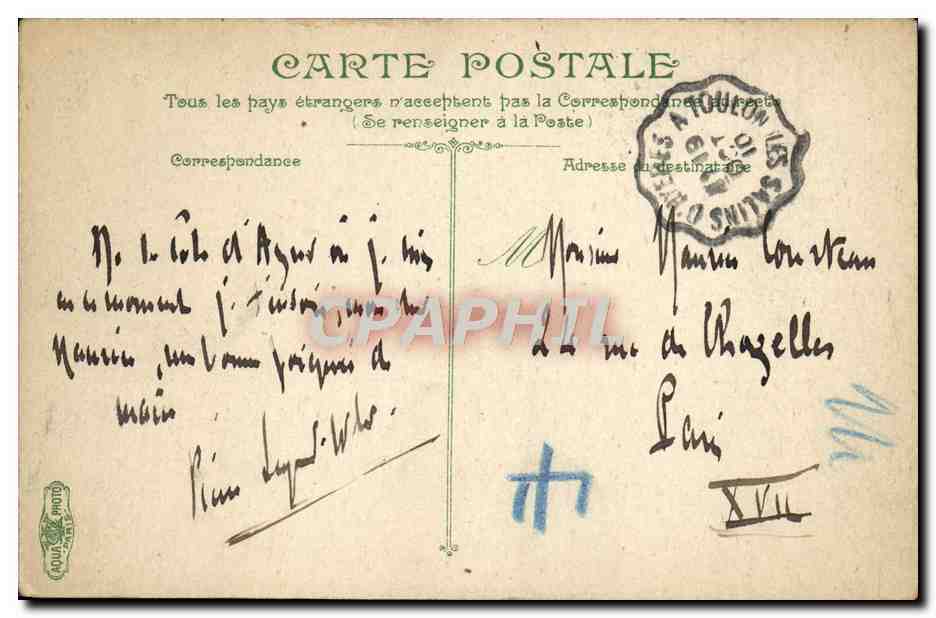 CARTE POSTALE
Tous les pays étrangers n'acceptent pas la Correspondance au recto
(Se renseigner à la Poste)
Correspondance
Adresse du destinataire
LES SALINS D'HYERES A TOULON
10
De la côte d'Azur où je suis
en ce moment je t'envoie, mon cher
Maurice, une bonne poignée de
main
Pierre
M
Monsieur Maurice
22 rue de Chazelles
Paris
XVII
CPAPHIL
AQUA PHOTO
PARIS